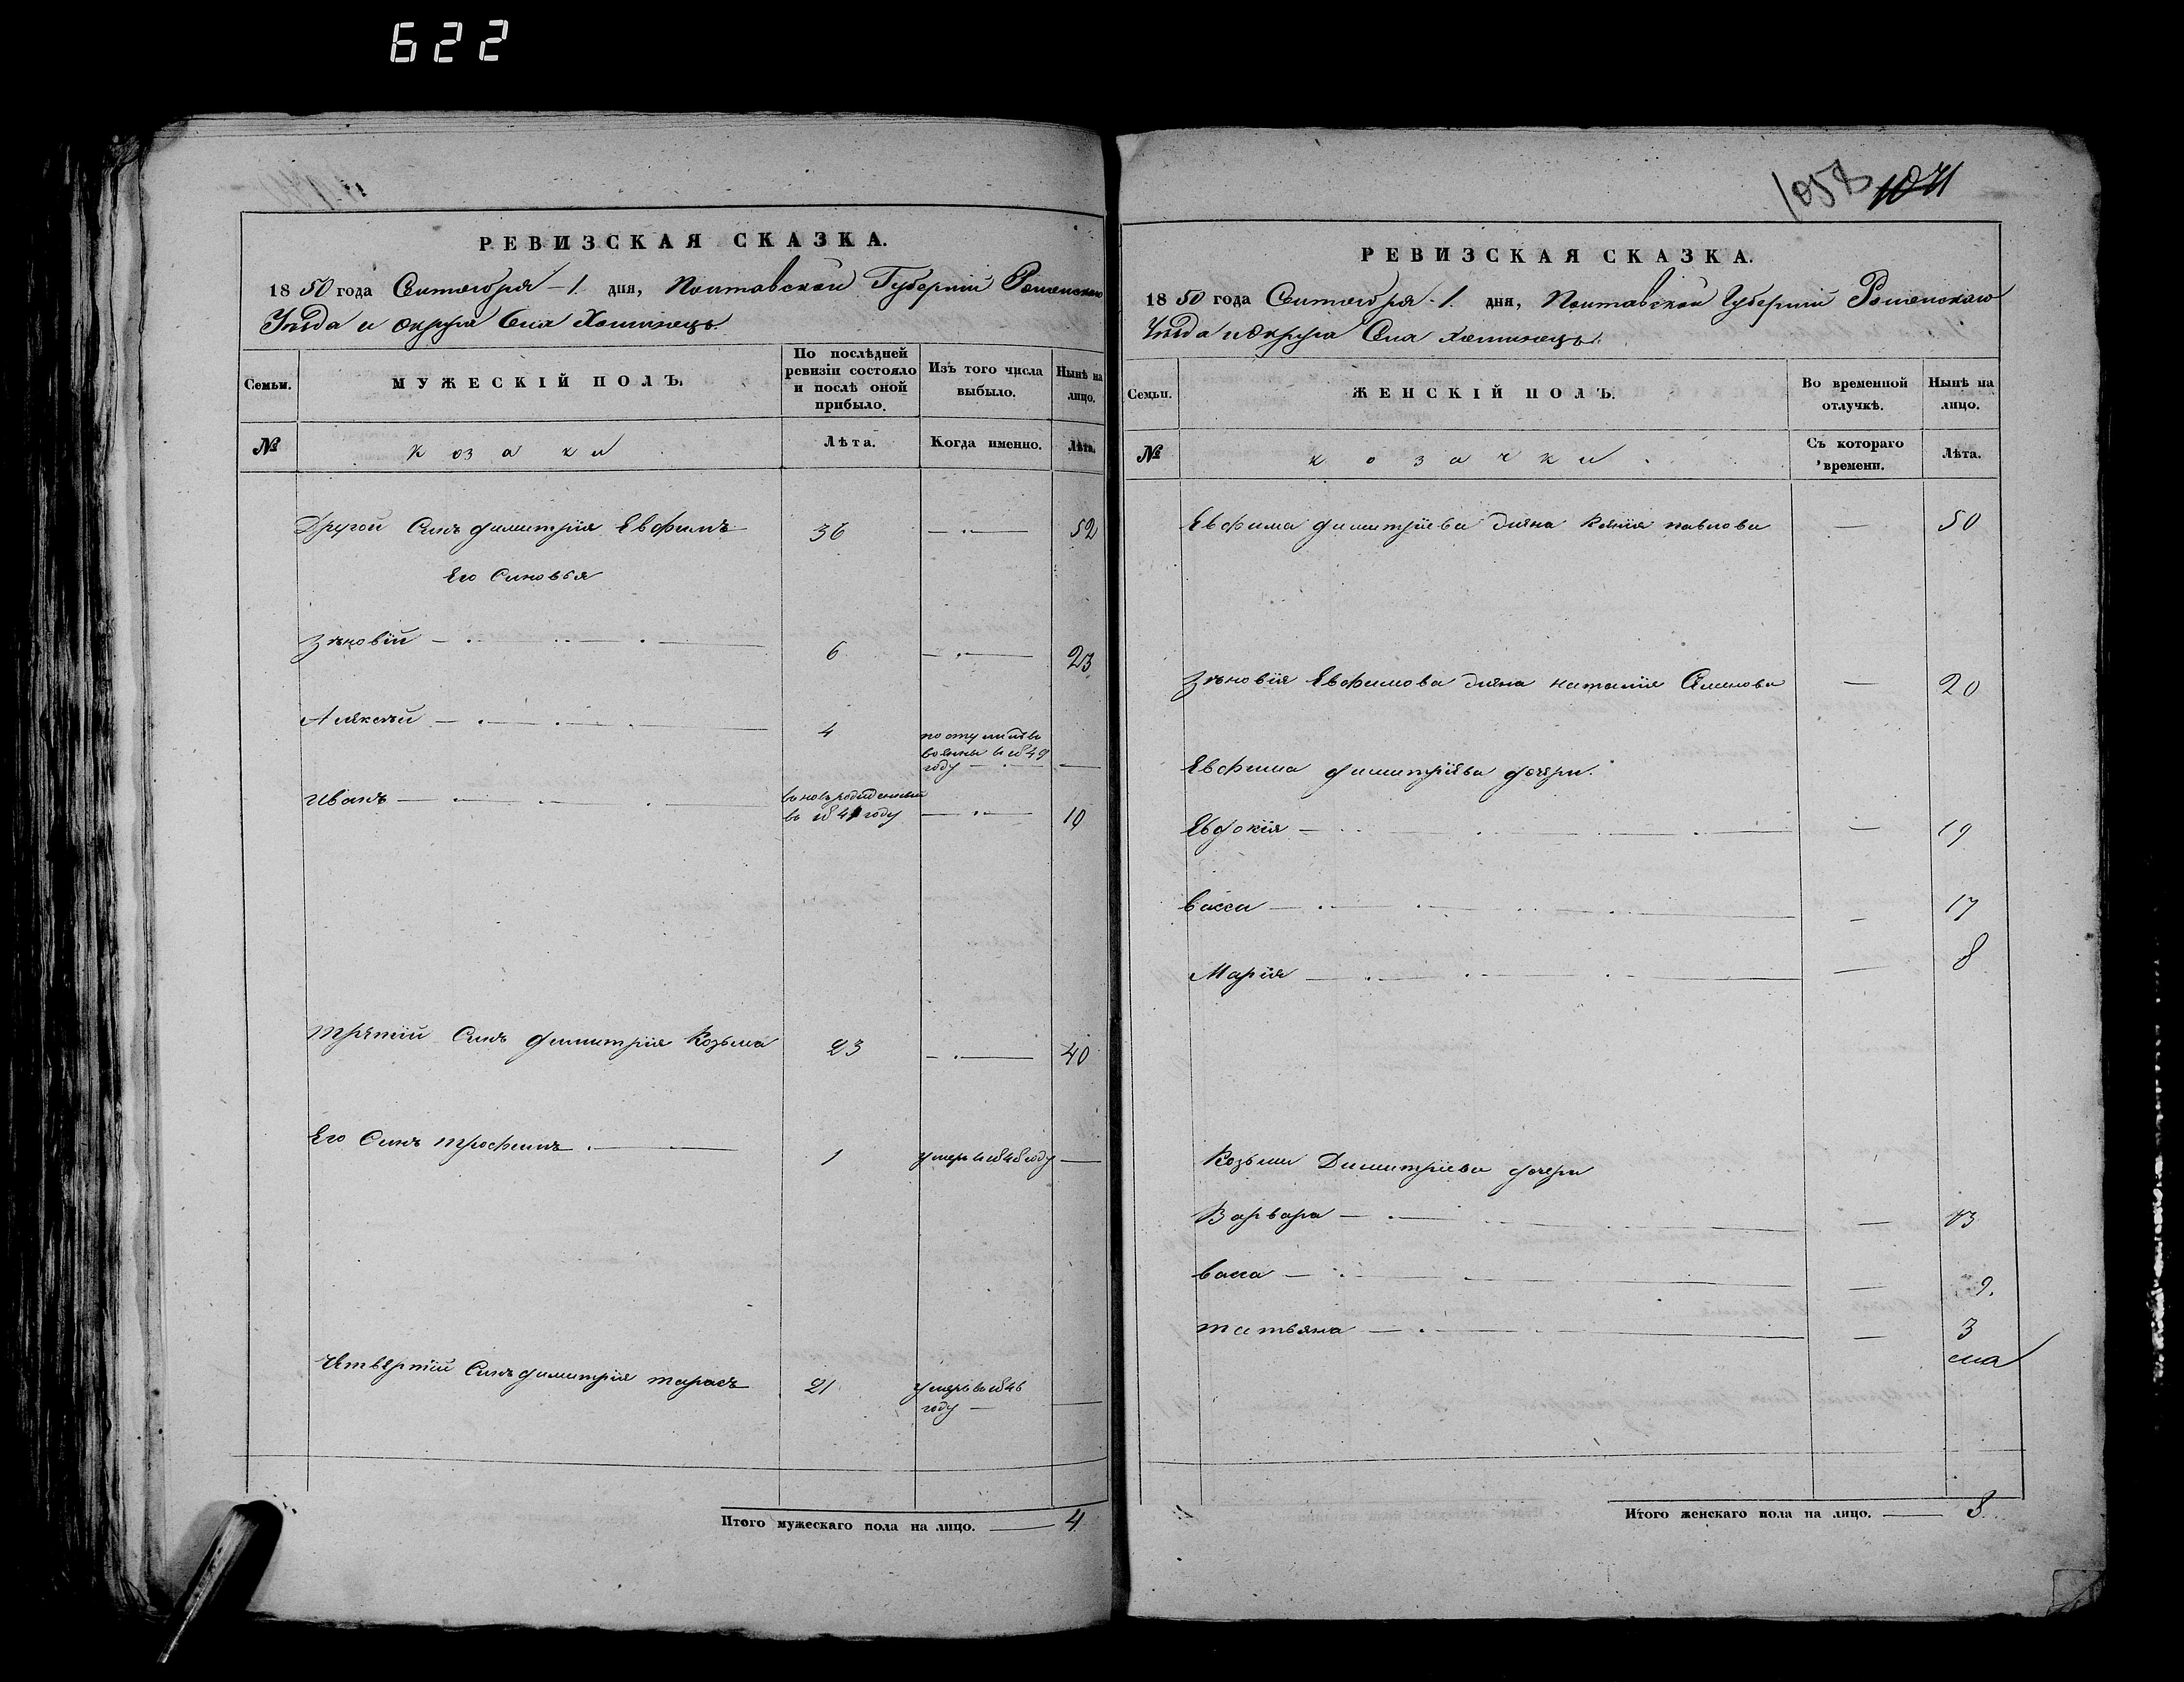 622
РЕВИЗСКАЯ СКАЗКА.
18 50 года Сентебря - 1. дня, Полтавской Губернiи Роменскаго
Уѣзда и округа Села Хоминецъ.
Семьи.
МУЖЕСКІЙ ПОЛЪ.
По послѣдней ревизіи состояло и послѣ оной прибыло.
Изъ того числа выбыло.
Нынѣ на лицо.
№
козаки
Лѣта.
Когда именно.
Лѣта.
Другой Синъ димитрiя Евфимъ 36 — 52
Его Синовья
Зѣновiй — 6 — 23
Алексѣй — 4
году —
Иванъ — вновь рожденный — 10
въ 1841 году
третiй Синъ димитрiя Козьма 23 — 40
Его Синъ трофимъ — 1 умеръ в 1848 году —
Четвертiй Синъ димитрiя тарасъ 21 умеръ во 1846 —
году —
Итого мужескаго пола на лицо. — 4
1058 1071
РЕВИЗСКАЯ СКАЗКА.
18 50 года Сентебря - 1. дня, Полтавской Губернiй Роменскаго
Уѣзда и Округа Села хоминецъ.
Семьи.
ЖЕНСКІЙ ПОЛЪ.
Во временной отлучкѣ.
Нынѣ на лицо.
№
козачки.
Съ котораго времени.
Лѣта.
Евфима димитрiева жена Ксенiя павлова — 50
Зѣновiя Евфимова жена наталiя Семенова — 20
Евфима димитрiева дочери.
Евдокiя — 19
васса — 17
Марiя — 8
Козьми Димитрiева дочери
Варвара — 13
васса — 9.
татьяна — 3
Итого женскаго пола на лицо. — 8